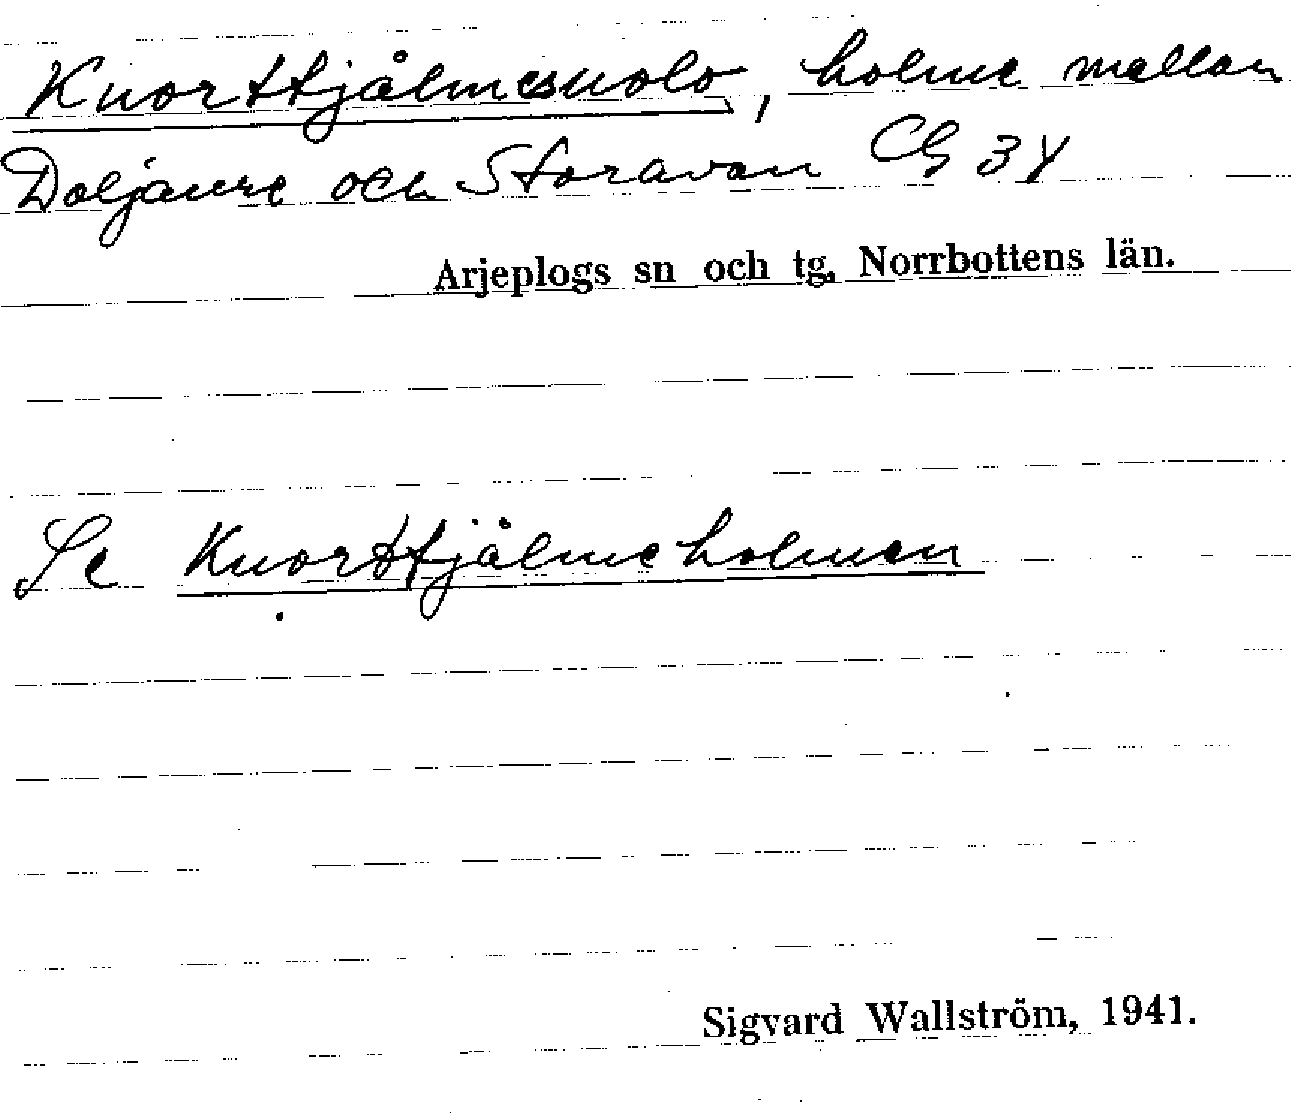 Knorttjålmesuolo, holme mellan
Doljaure och Storavan CG 3Y
Arjeplogs sn och tg. Norrbottens län.
Se Knorttjålmeholmen
Sigvard Wallström, 1941.